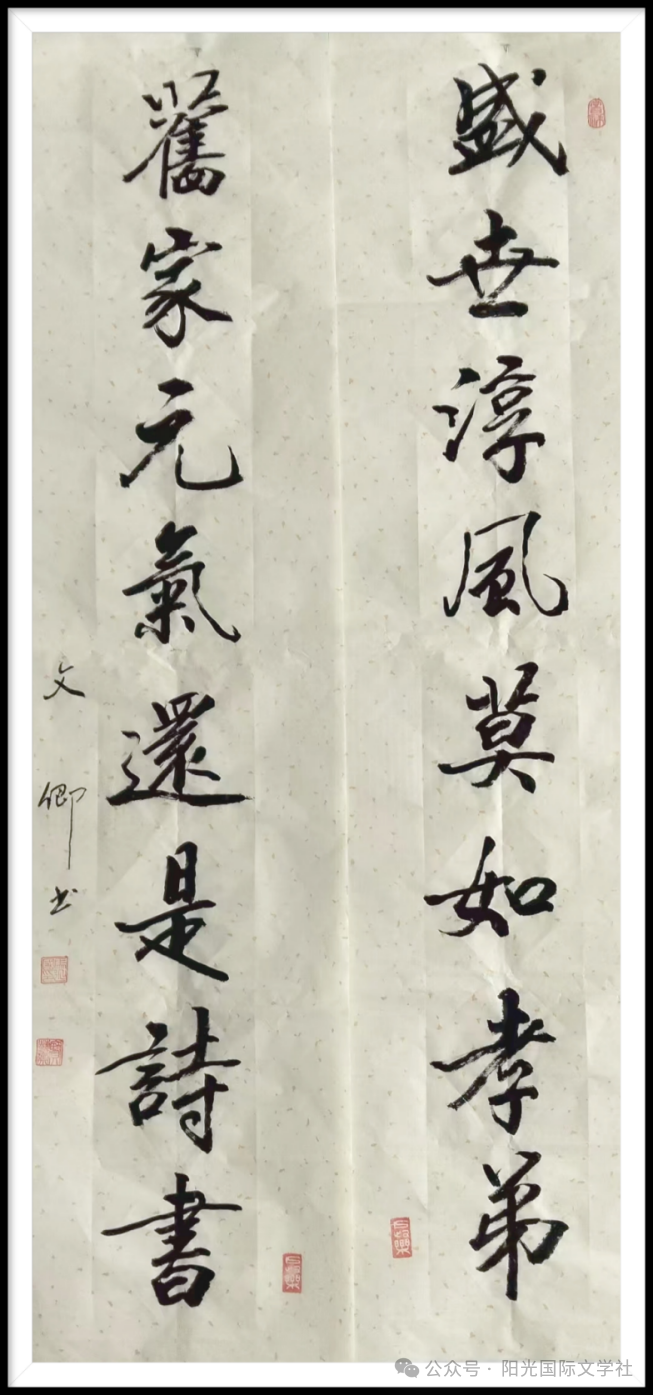 盛世淳風莫如孝弟
舊家元氣還是詩書
文卿书
公众号 · 阳光国际文学社